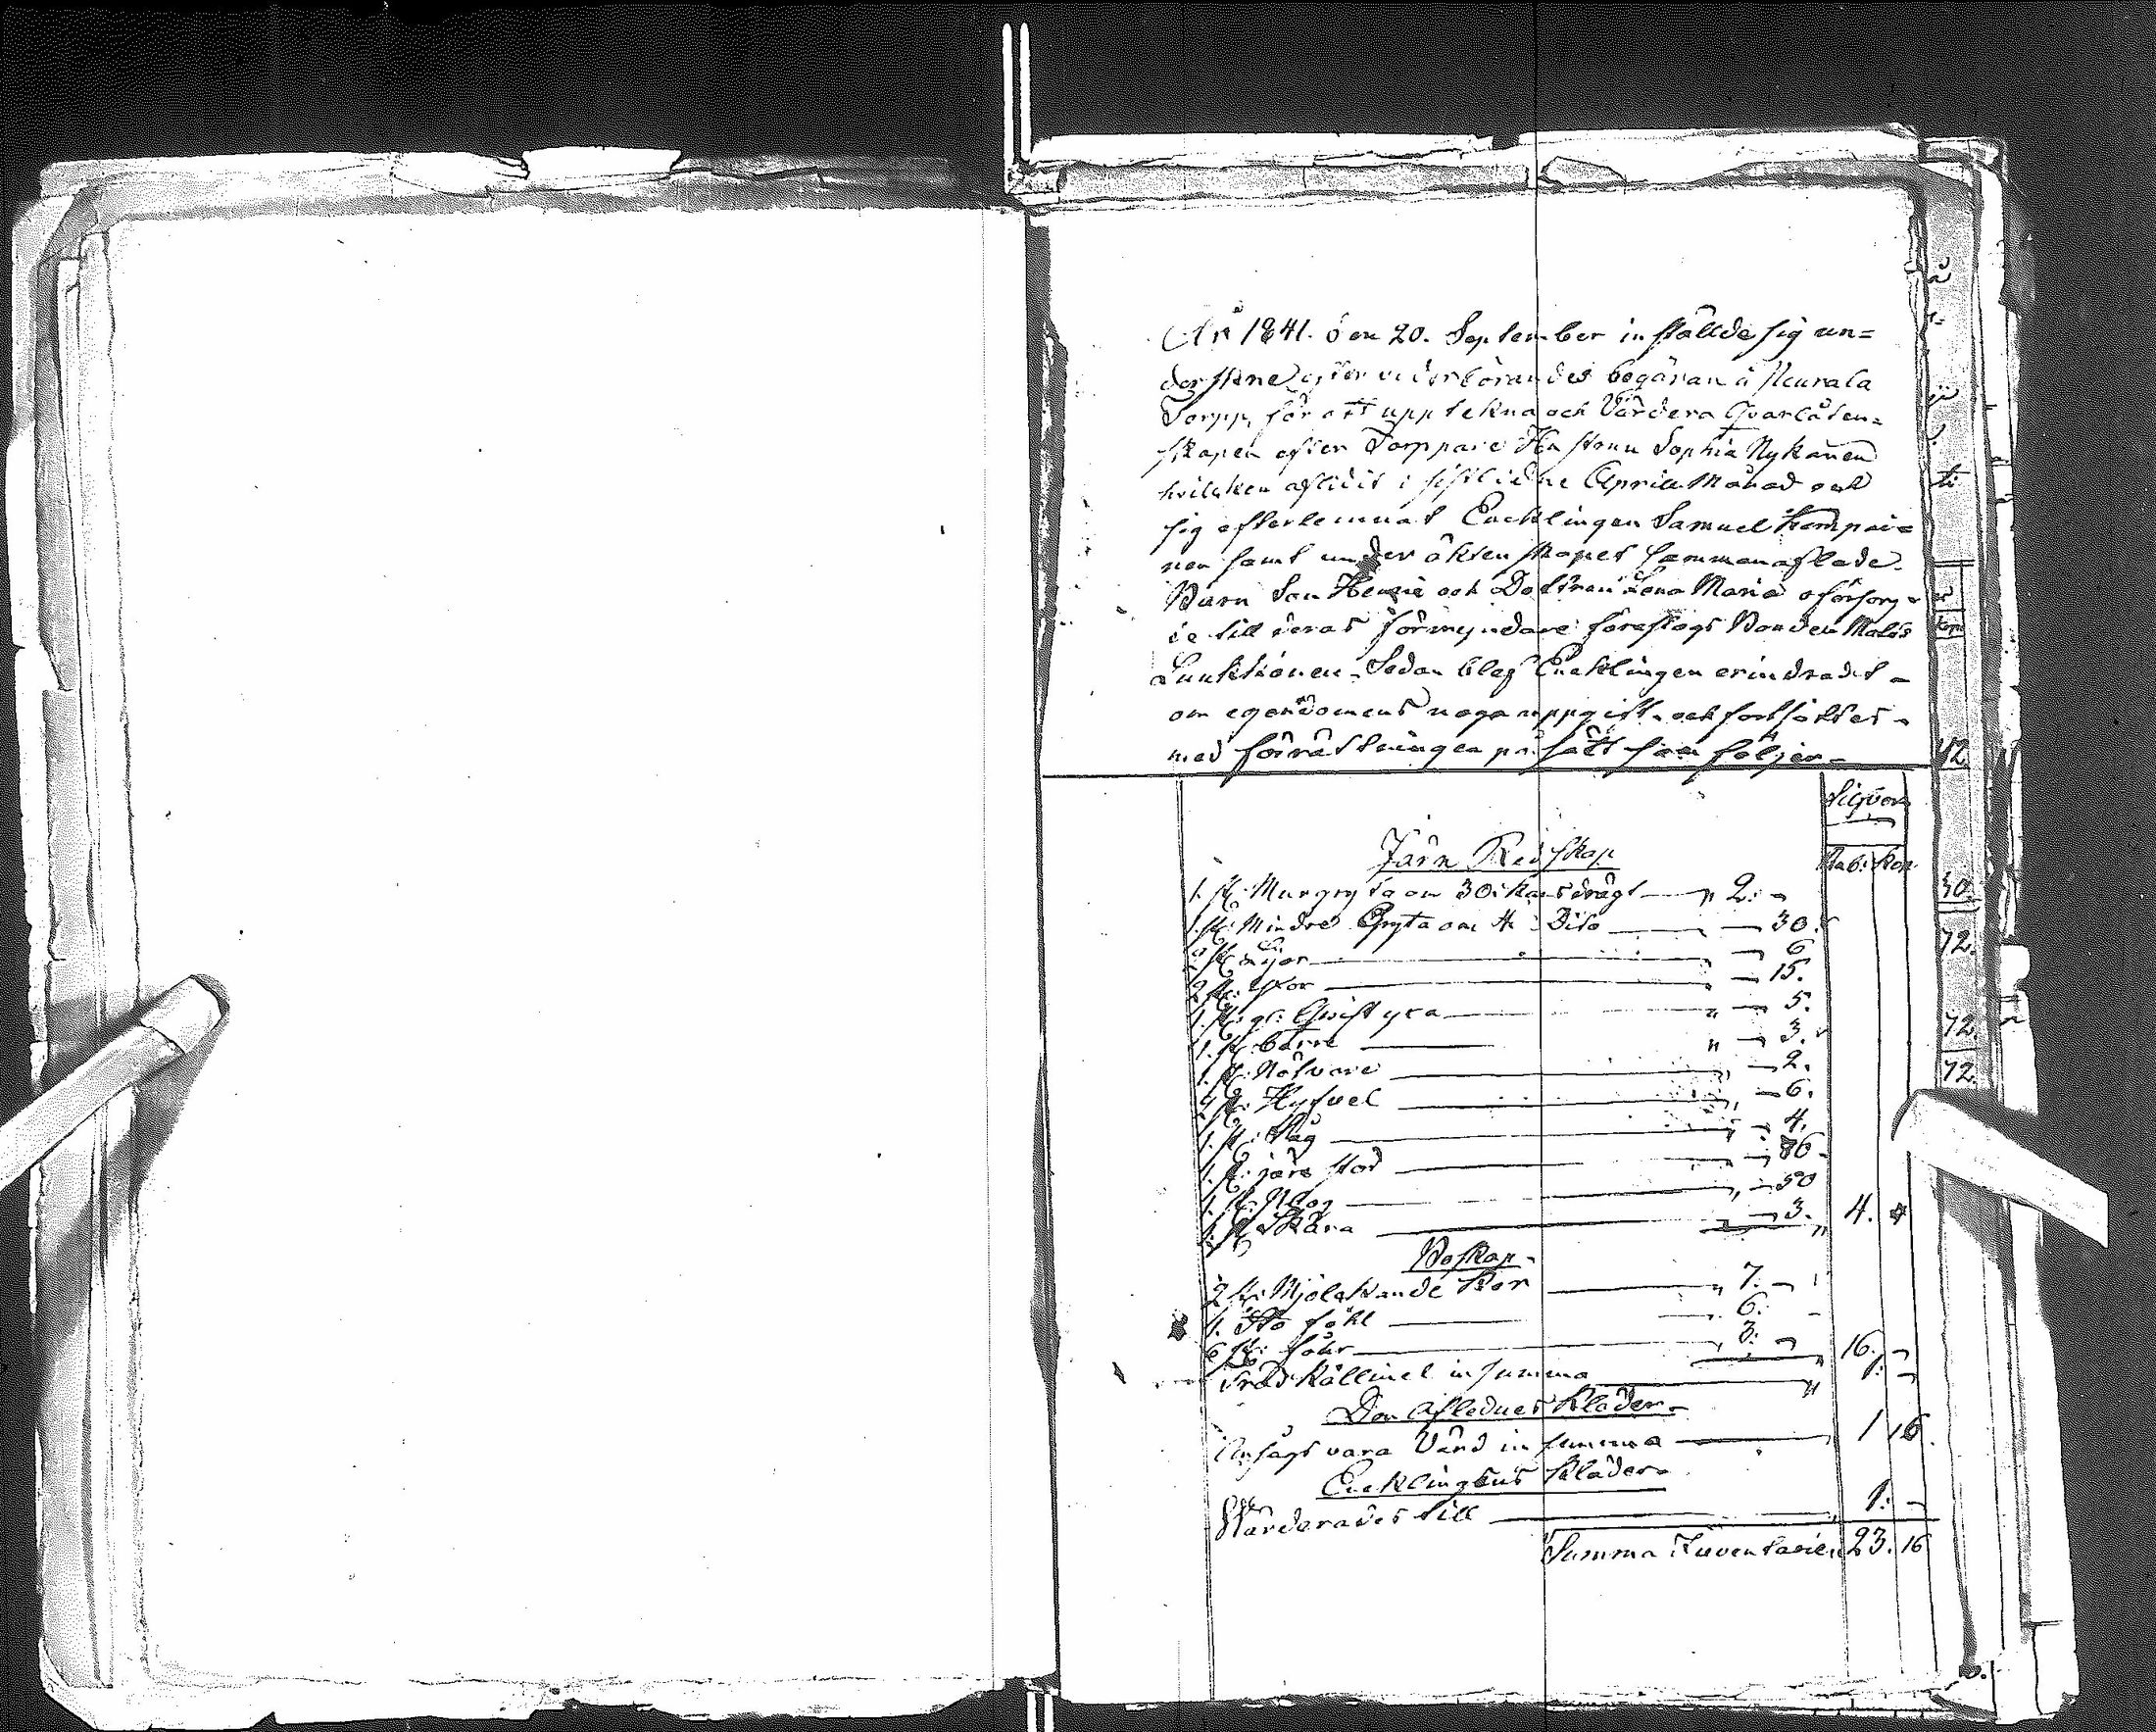 År 1841. den 20. September inställde sig un=
dertekne efter vederbörandes begäran å Neurala
Torpp, för att upptekna och Värdera Qvarlåten=
skapen efter Torppare Hustrun Sophia Nykänen
hvilken aflidit i sistlidne Aprill Månad och
sig efterlemnat Encklingen Samuel Komppai=
nen samt under äktenskapet sammanaflade
Barn Son Henric och Dottren Lena Maria oförsörg=
de till deras förmyndare föreslogs Bonden Matts
Luukkionen - Sedan blef Encklingen erindradt -
om egendomens noga uppgift och fortsättes -
med förrättningen på sätt som följer -
Silfver
Rub: Kop
Järn Redskap
1. st: Murgryta om 30: kans drägt — „ 2. -
1. st: Mindre Gryta om 4 Dito — 30.
2 st: Lijor — 6
2 st: — 15.
1. st: gr: — 5.
1. st: — „ — 3.
1. st: Nafvare — 2.
st: Hyfvel — 6.
1. st: Såg — 4.
1. st: järn — 86
1. st: Plog — 50
1. st: Skära — 3. 4. „
Boskap -
2 st: Mjölckande Kor — „ 7. -
1. Sto föhl — 6. -
6 st: fåhr — 3. - 16. -
Träd Källinel in summa — „ 1. -
Den Aflednes Kläder -
Ansågs vara Värd in summa — 1 16.
Encklingens Kläder -
Värderades till — 1. -
Summa Inventarien 23. 16
42
30
72.
72.
72.